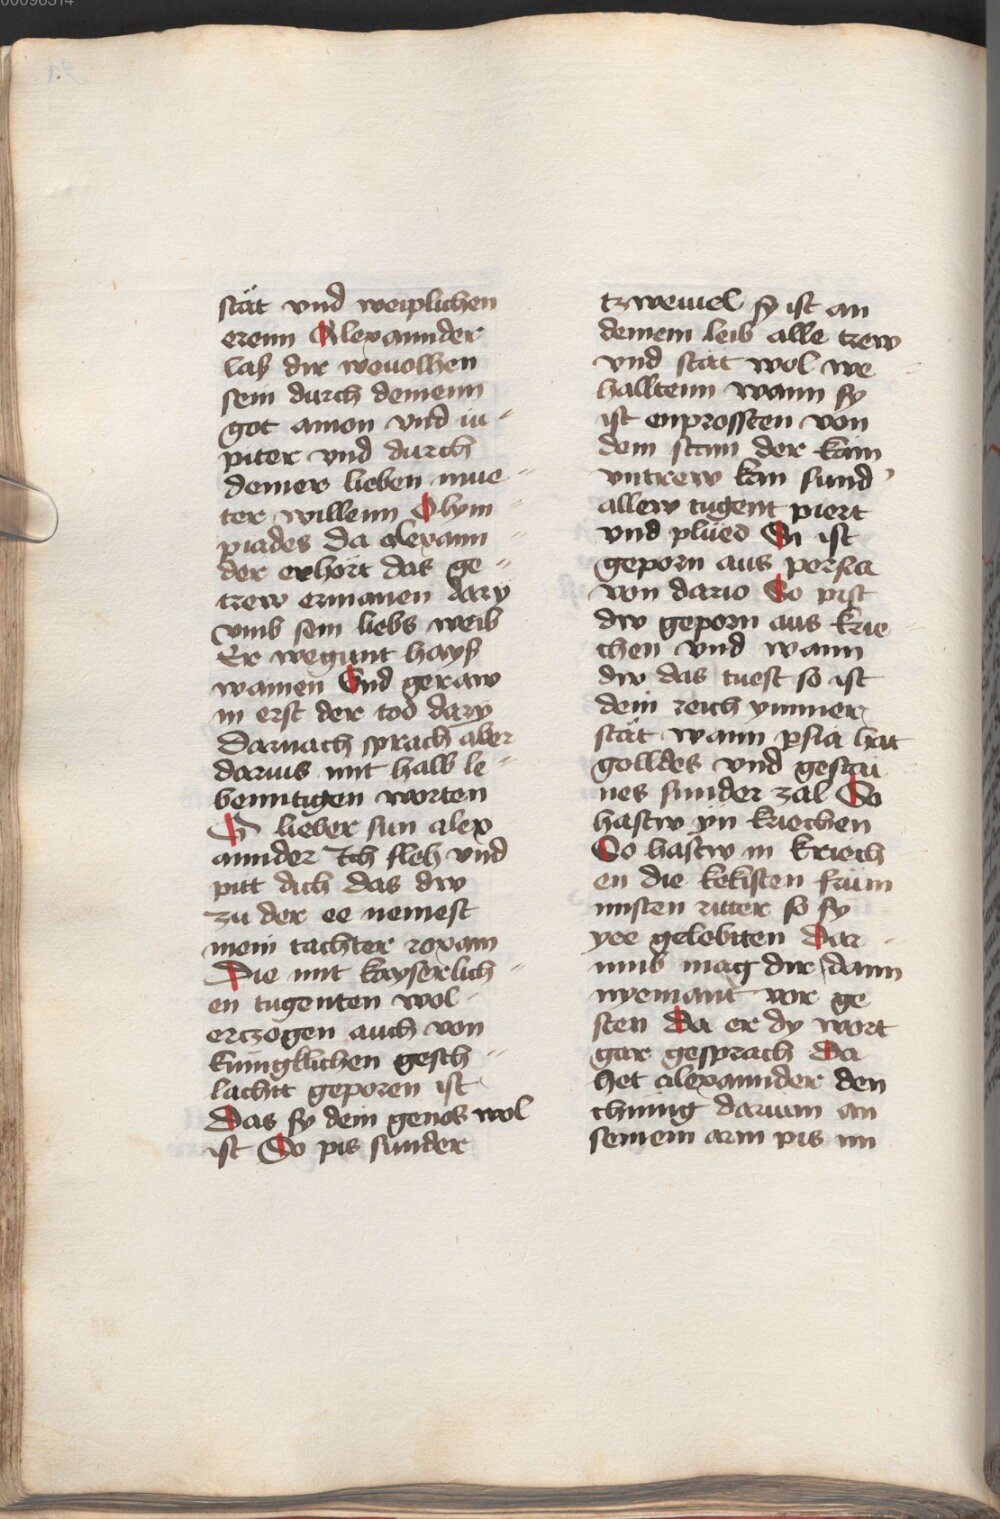 stät vnd weiplichen
erenn Alexannder
laß dir wevolhen
sein durch deinenn
got amon vnd iu-
piter vnd durch
deiner lieben mue-
ter willenn Olym-
piades Da alexann-
der erhört das ge-
trew ermanen dary
vmb sein liebs weib
Er wegunt hayß
wainen Vnd geraw
in erst der tod dary
Darnach sprach aber
darius mit halb le-
benntigen worten
O lieber sun alex
annder Ich fleh vnd
pitt dich das dw
zu der ee nemest
mein tachter roxam
Die mit kayserlich-
en tugenten wol
erczogen auch von
kunigklichen gesch-
lächt geporen ist
Das sy dein genos wol
ist So pis sunder
tzweiuel sy ist an
deinem leib alle trew
vnd stät wol we
halltenn wann sy
ist enprossten von
dem stam der kain
vntrew kan sund'
allew tugent piert
vnd plued Sy ist
geporn aus persia
von dario So pist
dw geporn aus krie
chen vnd wann
dw das tuest so ist
dein reich ymmer
stät wann persia hat
golldes vnd gestai
nes sunder zal So
hastw yn kriechen
So hastw in kriech
en die kekisten frum
misten ritter so sy
yee gelebtten Dar-
umb mag dir dann
nyemant vor ge
sten Da er dy wort
gar gesprach Da
het alexannder den
chunig darium an
seinem arm pis im
00096314